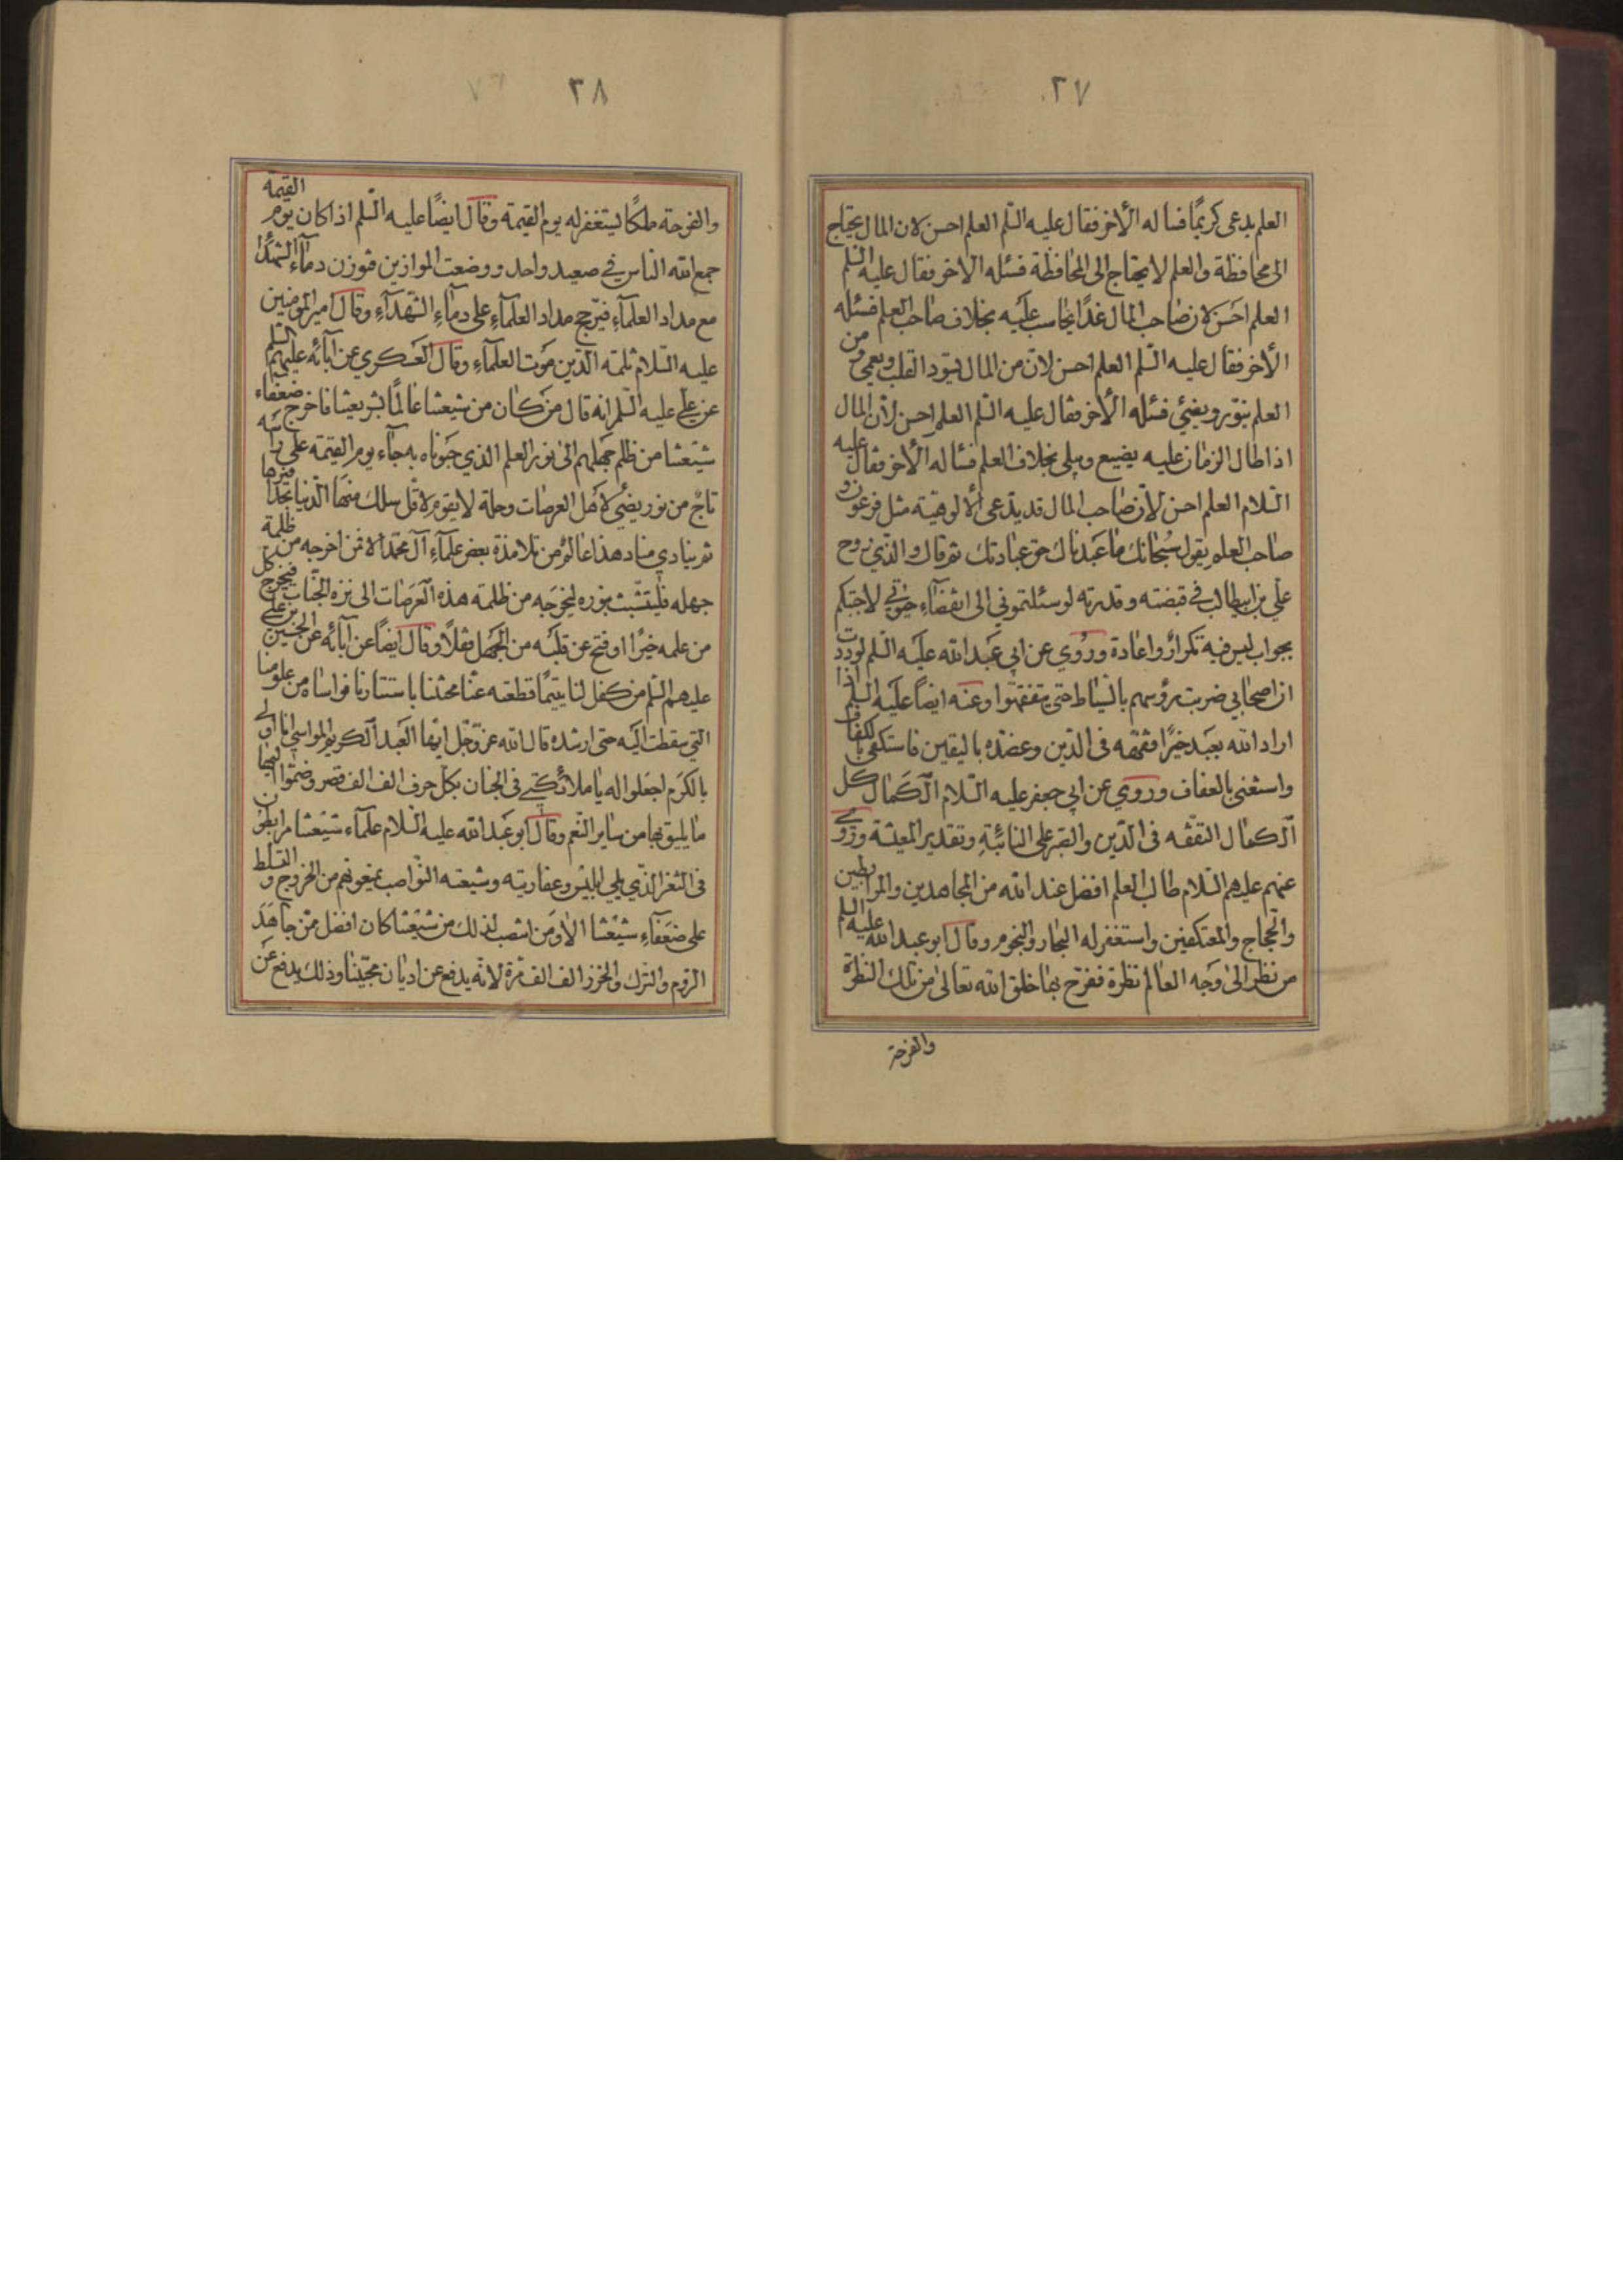 ٢٧
العلم يدعى كريمًا فساله الأخر فقال عليه السّلم العلم احسن لان المال يحتاج
الى محافظة والعلم لا يحتاج الى المحافظة فسئله الاخر فقال عليه السّلم
العلم احسن لان صاحب المال غدًا يحاسب عليه بخلاف صاحب العلم فسئله
الأخر فقال عليه السّلم العلم احسن لانّ من المال يسوّد القلب ويعمى ومن
العلم ينوّر ويضئ فسئله الأخر فقال عليه السّلم العلم احسن لأنّ المال
اذا طال الزمان عليه يضيع ويبلى بخلاف العلم فساله الأخر فقال عليه
السّلام العلم احسن لأنّ صاحب المال قد يدّعى الألوهيّة مثل فرعون و
صاحب العلم يقول سبحانك ما عبدناك حق عبادتك ثم قال والذي روح
علي بن ابيطالب في قبضته وقدرته لو سئلتموني الى انقضاء حيوتي لاجبتكم
بجواب ليس فيه تكرار واعادة وروي عن ابي عبد الله عليه السّلم لوددت
ان اصحابي ضربت رؤسهم بالسّياط حتى يتفقّهوا وعنه ايضًا عليه السّلم اذا
اراد الله بعبد خيرًا فقّهه فى الدّين وعضده باليقين فاستكفى بالكفاف
واستغنى بالعفاف وروي عن ابي جعفر عليه السّلام الكمال كل
الكمال التفقّه فى الدّين والصّبر على النائبة وتقدير المعيشة وروي
عنهم عليهم السّلام طالب العلم افضل عند الله من المجاهدين والمرابطين
والحجاج والمعتكفين واستغفر له البحار والنجوم وقال ابو عبد الله عليه السّلم
من نظر الى وجه العالم نظرة ففرح بها خلق الله تعالى من تلك النظرة
والفرحة
٢٨
والفرحة ملكًا ليستغفر له يوم القيمة وقال ايضًا عليه السّلم اذا كان يوم القيمة
جمع الله الناس في صعيد واحد ووضعت الموازين فتوزن دماء الشهداء
مع مداد العلمآء فيرّجح مداد العلمآء على دمآء الشّهدآء وقال امير المؤمنين
عليه السّلام ثلمته الدّين موت العلمآء وقال العسكري عن آبائه عليهم السّلم
عن علي عليه السّلم انه قال من كان من شيعتنا عالمًا بشريعتنا فاخرج ضعفاء
شيعتنا من ظلم جهلهم الى نور العلم الذي حبوناه به جآء يوم القيمة على راسه
تاج من نور يضئ لاهل العرصات وحلة لا يقوم لاقل سلك منها الدّنيا بحذافيرها
ثم ينادي مناد هذا عالم من تلامذة بعض علمآء آل محمّد الا فمن اخرجه من ظلمة
جهله فليتشبّث بنوره ليخرجه من ظلمة هذه العرصات الى نزه الجنّات فيخرج كل
من علمه خيرًا او فتح عن قلبه من الجهل قفلًا وقال ايضًا عن آبائه عن الحسين بن علي
عليهم السّلم من كفل لنا يتيمًا قطعته عنّا محنتنا باستتارنا فواساه من علومنا
التي سقطت اليه حتى ارشده قال الله عزّ وجل ايّها العبد الكريم المواسي انا اولى
بالكرم اجعلوا له يا ملائكتي فى الجنان بكلّ حرف الف الف قصر وضمّوا اليها
ما يليق بها من ساير النّعم وقال ابو عبد الله عليه السّلام علمآء شيعتنا مرابطون
فى الثغر الّذي يلي ابليس وعفاريته وشيعته النّواصب يمنعونهم من الخروج والتسلط
على ضعفآء شيعتنا الا ومن انتصب لذلك من شيعتنا كان افضل ممّن جاهد
الروم والترك والخزر الف الف مرة لانّه يدفع عن اديان محبّينا وذلك يدفع عن